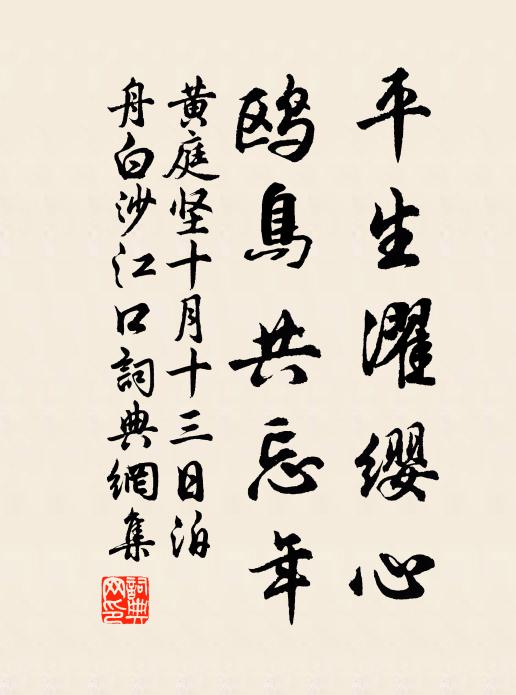 平生濯纓心
鸥鳥共忘年
黄庭坚十月十三日泊
舟白沙江口詞典網集
詞典
网印